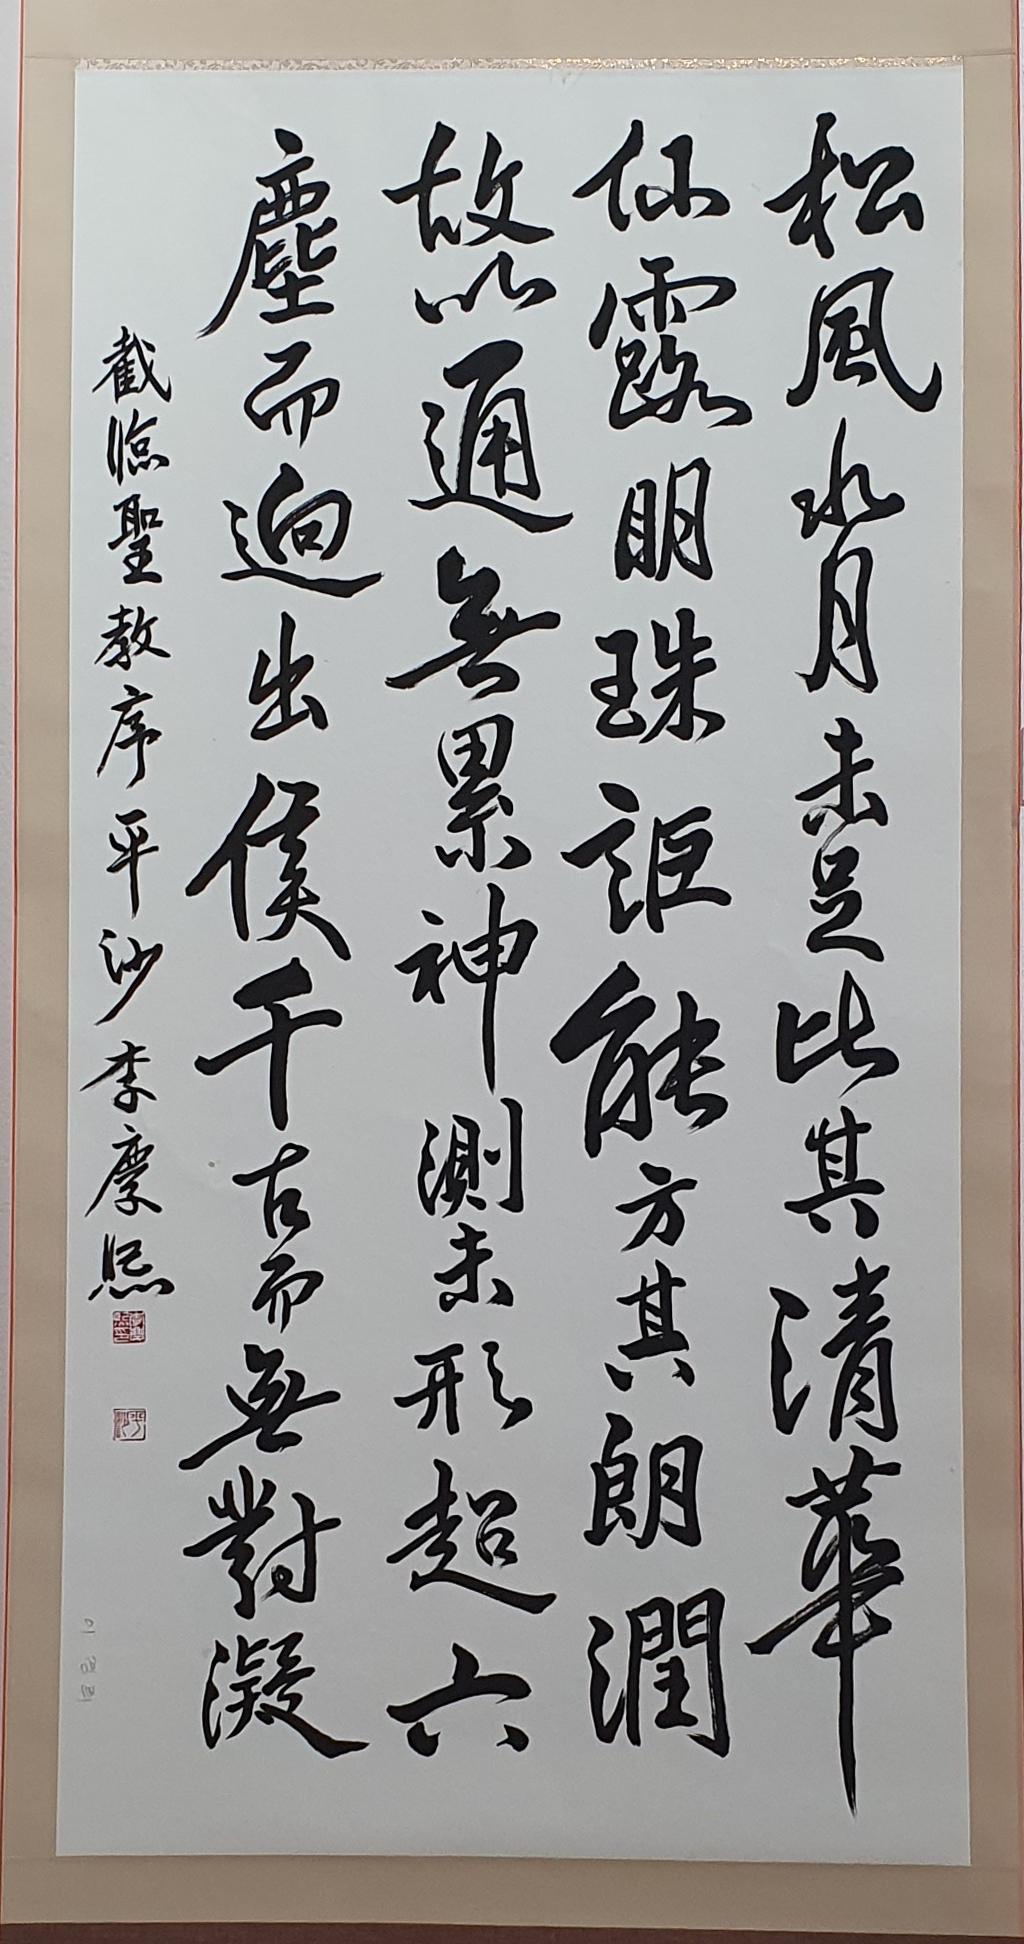 松風水月未足比其清華
仙露明珠詎能方其朗潤
故以通無累神測未形超六
塵而迥出俟千古而無對凝
截臨聖教序平沙李慶熙